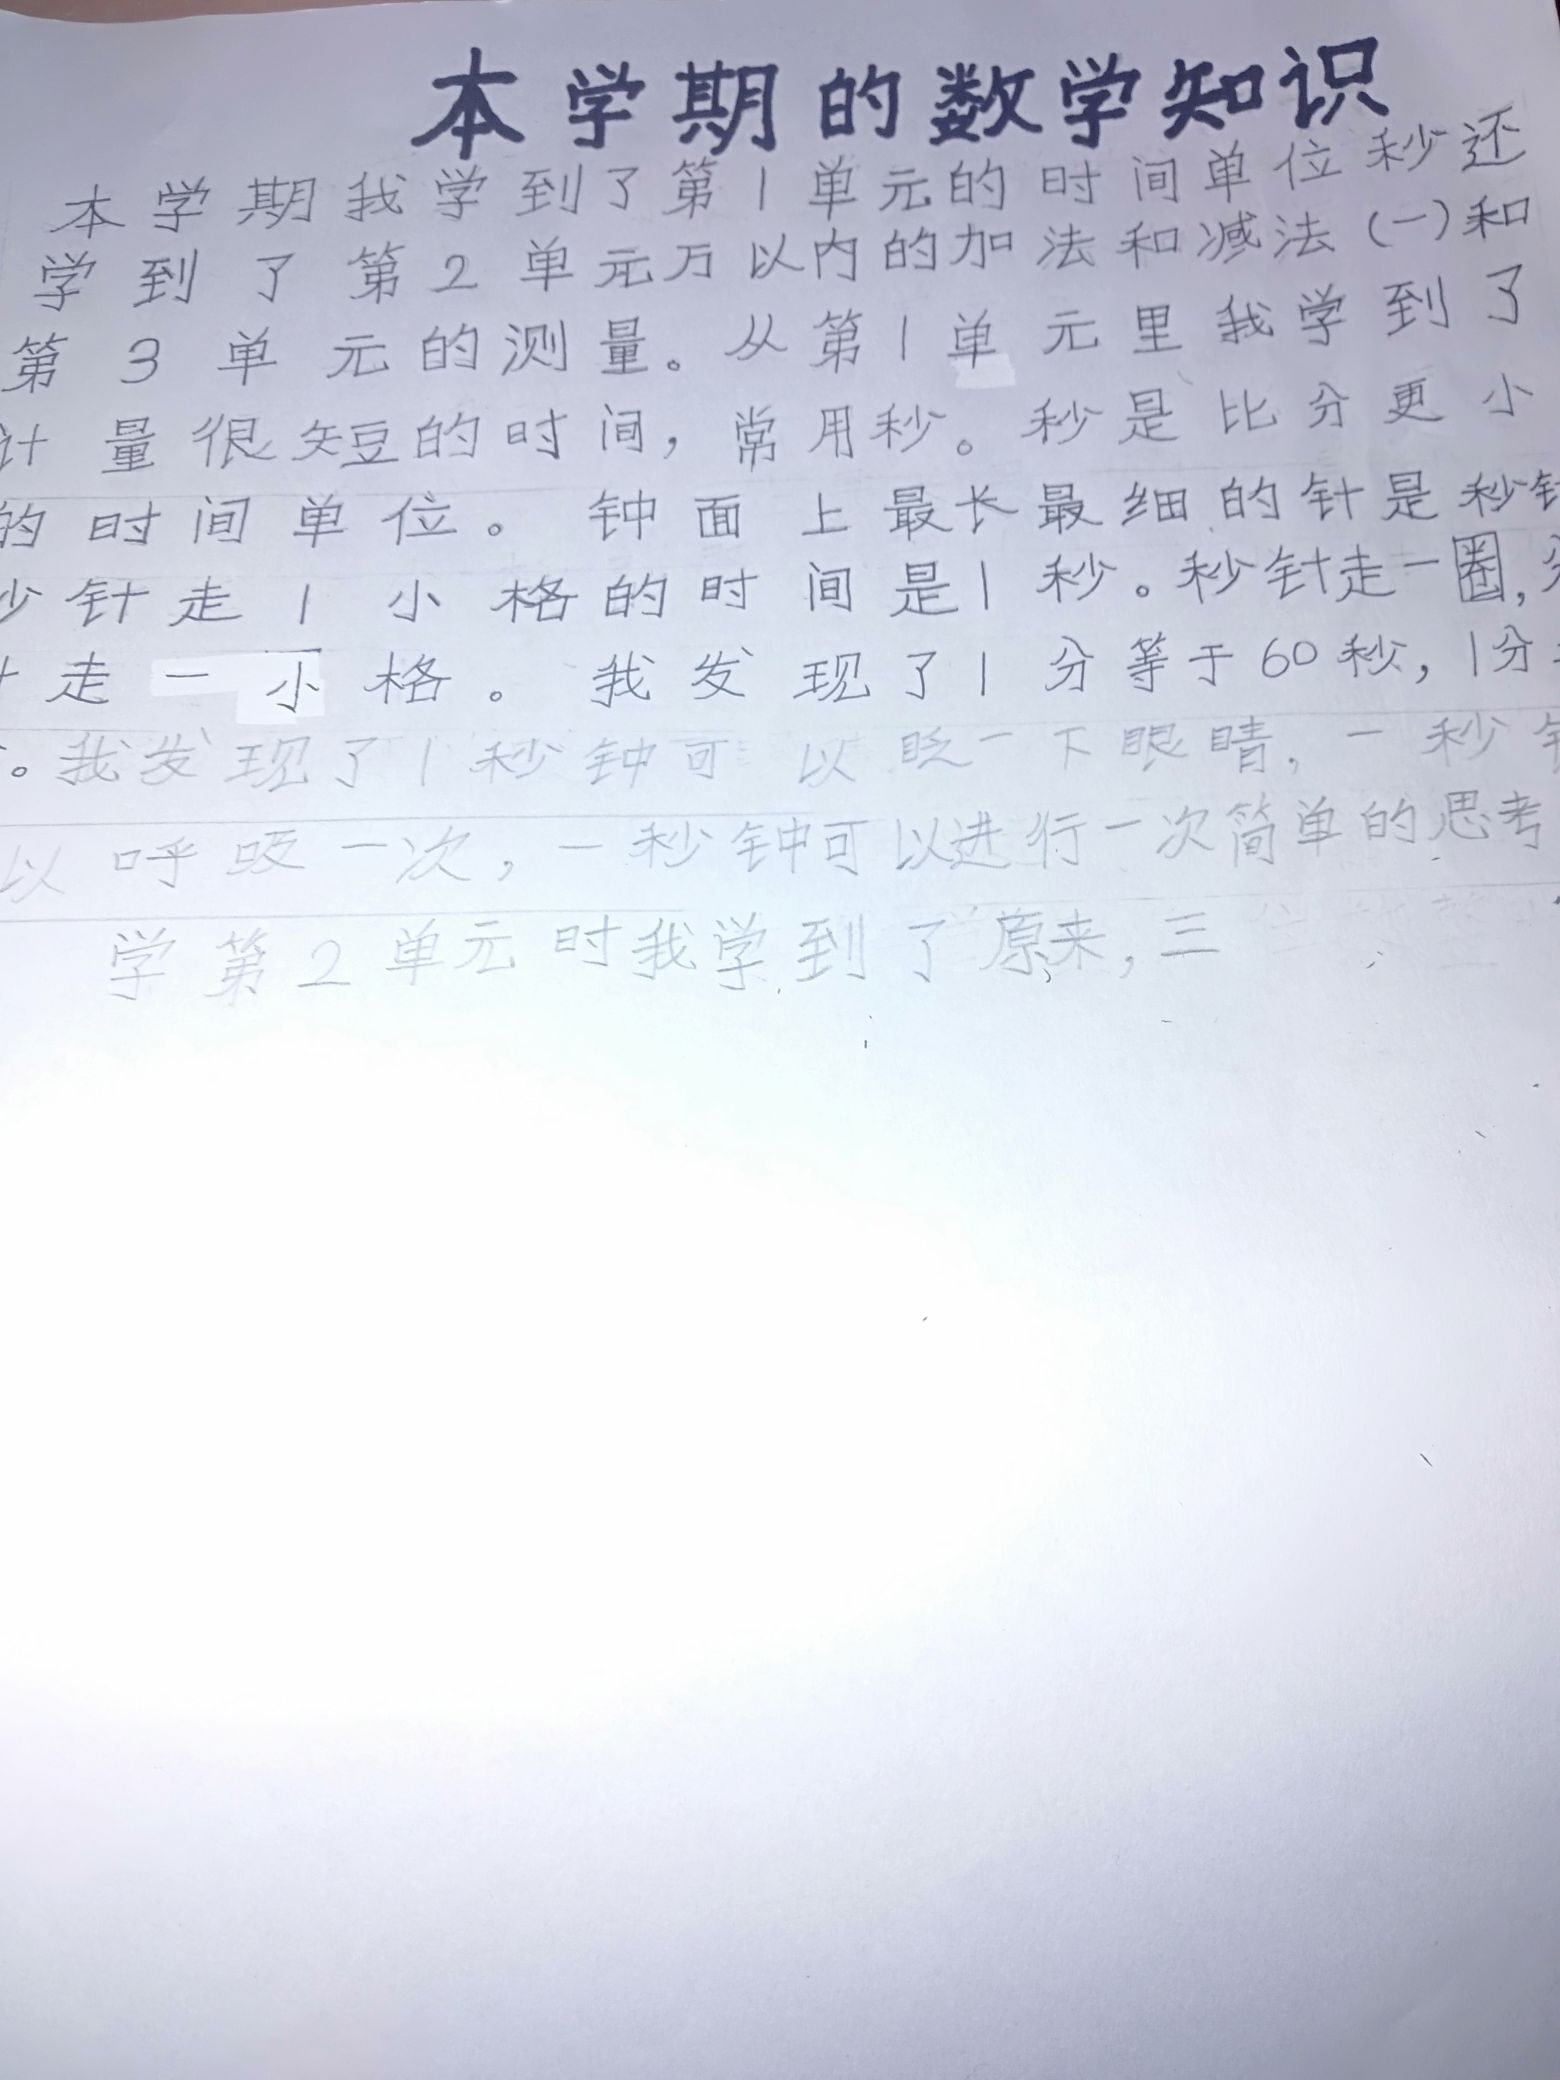 本学期的数学知识
本学期我学到了第1单元的时间单位秒还
学到了第2单元万以内的加法和减法(一)和
第3单元的测量。从第1单元里我学到了
计量很短的时间,常用秒。秒是比分更小
的时间单位。钟面上最长最细的针是秒针
秒针走1小格的时间是1秒。秒针走一圈,分
走一小格。我发现了1分等于60秒,1分
。我发现了1秒钟可以眨一下眼睛,一秒钟
以呼吸一次,一秒钟可以进行一次简单的思考
学第2单元时我学到了原来,三